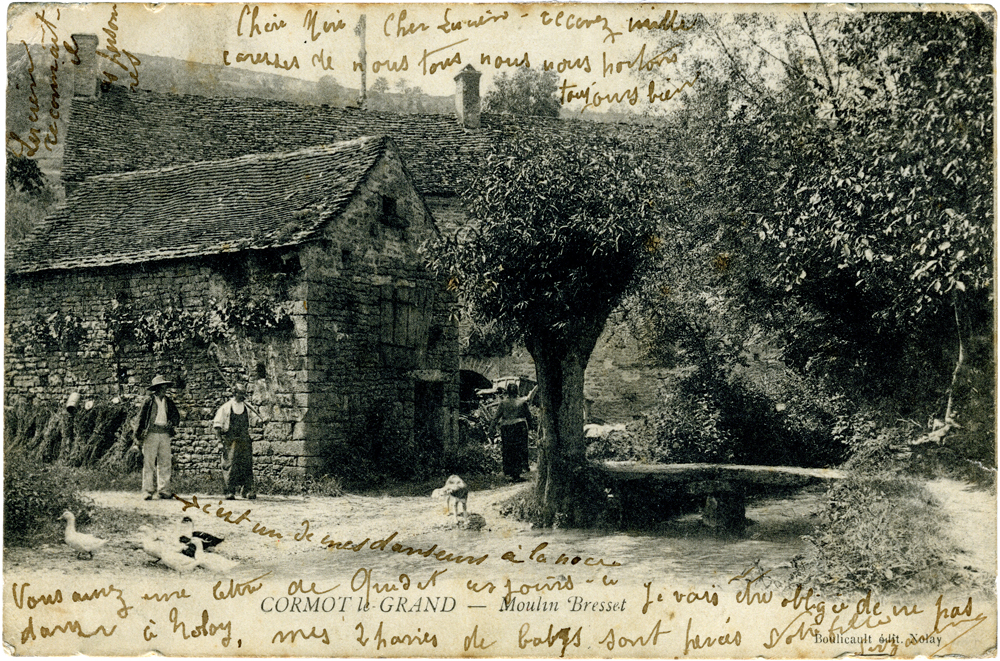 Chère Mimi Cher Lucien - recevez mille
caresses de nous tous nous nous portons
toujours bien
c'est un de mes danseurs à la noce
Vous aurez une lettre de Quidet ces jours-ci Je vais être obligée de ne pas
CORMOT-le-GRAND — Moulin Bresset
danser à Nolay, mes 2 paires de babys sont percés Votre fille
Boulicault édit. Nolay